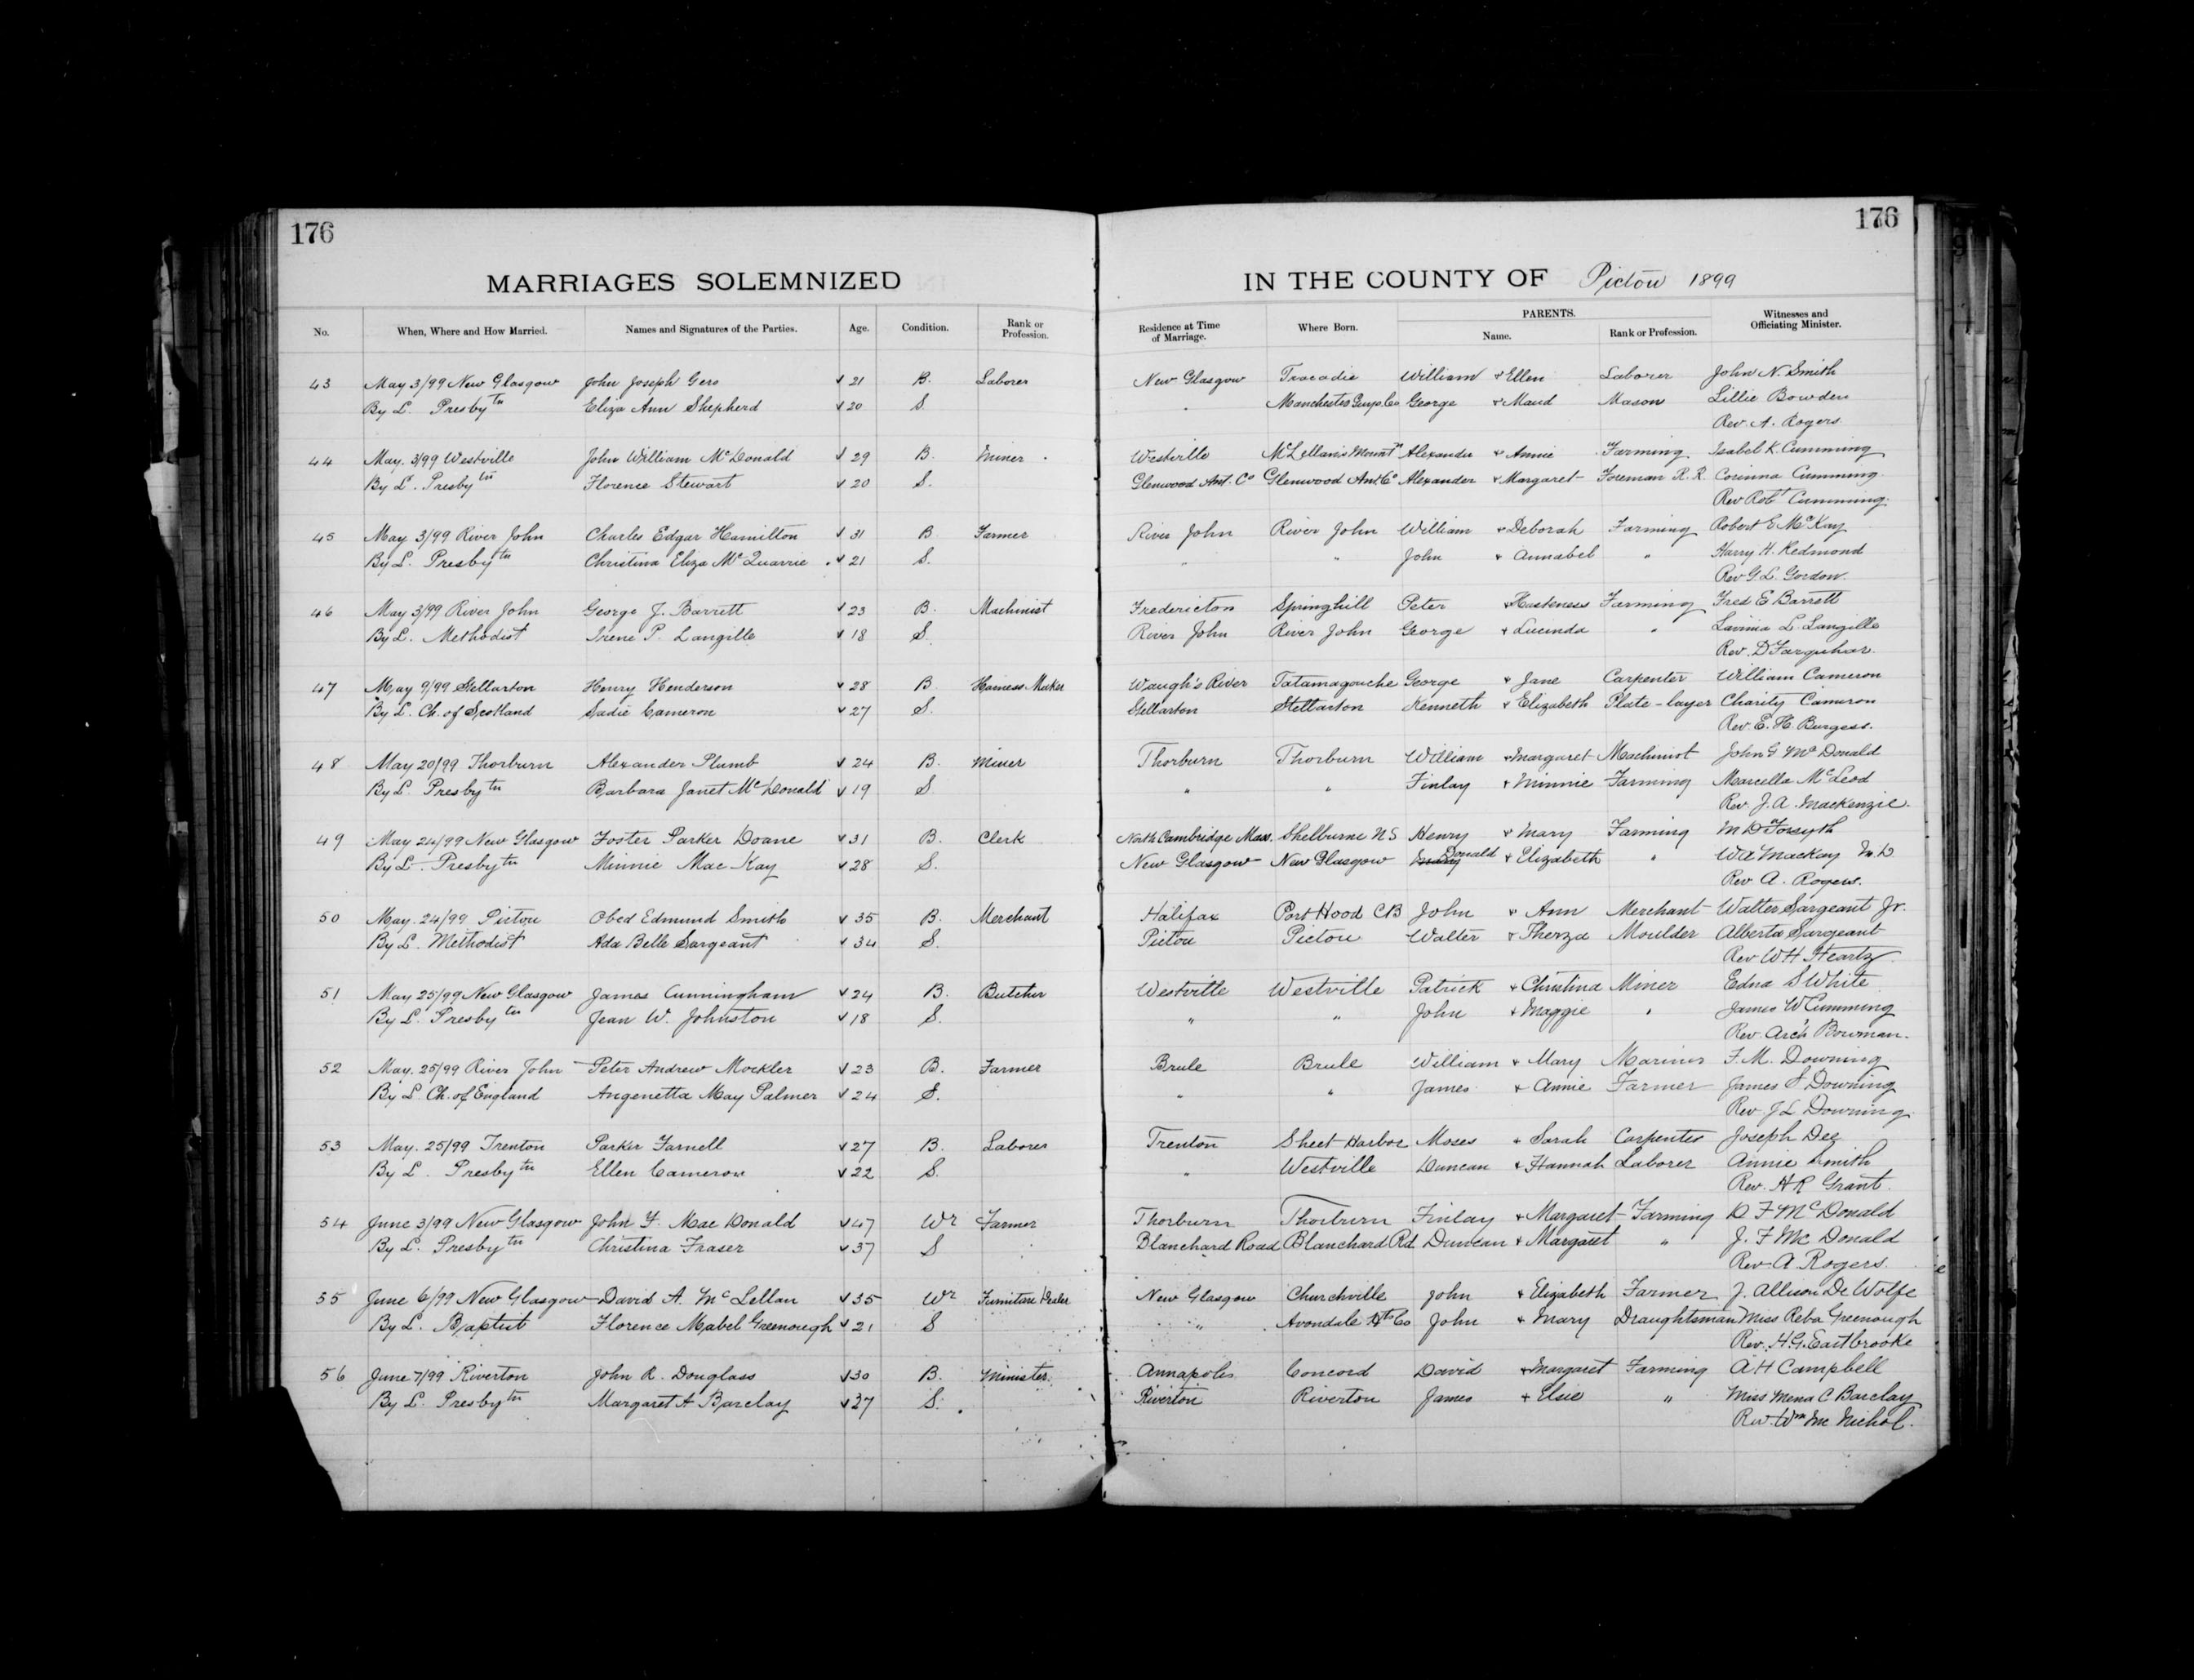 176 176
MARRIAGES SOLEMNIZED IN THE COUNTY OF Pictou 1899
No. When, Where and How Married. Names and Signatures of the Parties. Age. Condition. Rank or Profession. Residence at Time of Marriage. Where Born. PARENTS. Name. Rank or Profession. Witnesses and Officiating Minister.
43 May 3/99 New Glasgow John Joseph Gero √ 21 B. Laborer New Glasgow Tracadie William + Ellen Laborer John N. Smith
By L. Presbytn Eliza Ann Shepherd √ 20 S. " Manchester Guys. Co George + Maud Mason Lillie Bowden
Rev. A. Rogers
44 May. 3/99 Westville John William McDonald √ 29 B. Miner Westville McLellan's Mountn Alexander + Annie Farming Isabel K. Cumming
By L. Presbytn Florence Stewart √ 20 S. Glenwood Ant. Co Glenwood Ant. Co Alexander + Margaret Foreman R.R. Corinna Cumming
Rev Robt Cumming
45 May 3/99 River John Charles Edgar Hamilton √ 31 B Farmer River John River John William + Deborah Farming Robert E McKay
By L. Presbytn Christina Eliza McQuarrie √ 21 S. " " John + Annabel " Harry H. Redmond
Rev G. L. Gordon.
46 May 3/99 River John George J. Barrett √ 23 B. Machinist Fredericton Springhill Peter + Farming Fred E Barrett
By L. Methodist Irene P. Langille √ 18 S. River John River John George + Lucinda " Lavinia L. Langille
Rev. D Farquhar.
47 May 9/99 Stellarton Henry Henderson √ 28 B. Harness-Maker Waugh's River Tatamagouche George + Jane Carpenter William Cameron
By L. Ch. of Scotland Sadie Cameron √ 27 S. Stellarton Stellarton Kenneth + Elizabeth Plate-layer Charity Cameron
Rev. E. H. Burgess.
48 May 20/99 Thorburn Alexander Plumb √ 24 B. Miner Thorburn Thorburn William + Margaret Machinist John G McDonald
By L. Presbytn Barbara Janet McDonald √ 19 S " " Finlay + Minnie Farming Marcella McLeod
Rev. J. A. Mackenzie.
49 May 24/99 New Glasgow Foster Parker Doane √ 31 B. Clerk North Cambridge Mass. Shelburne N S Henry + Mary Farming M D Forsyth
By L. Presbytn Minnie MacKay √ 28 S. New Glasgow New Glasgow Donald + Elizabeth " W A MacKay M.D
Rev. A. Rogers.
50 May. 24/99 Pictou Obed Edmund Smith √ 35 B. Merchant Halifax Port Hood CB John + Ann Merchant Walter Sargeant Jr.
By L. Methodist Ada Belle Sargeant √ 34 S. Pictou Pictou Walter + Therza Moulder Alberta Sargeant
Rev W H Heartz
51 May 25/99 New Glasgow James Cunningham √ 24 B. Butcher Westville Westville Patrick + Christina Miner Edna S White
By L. Presbytn Jean W. Johnston √ 18 S. " " John + Maggie " James W Cumming
Rev. Archd Bowman.
52 May. 25/99 River John Peter Andrew Mockler √ 23 B. Farmer Brule Brule William + Mary Mariner F. M. Downing
By L. Ch. of England Angenetta May Palmer √ 24 S. " " James + Annie Farmer James S Downing
Rev. J L Downing.
53 May. 25/99 Trenton Parker Farnell √ 27 B. Laborer Trenton Sheet Harbor Moses + Sarah Carpenter Joseph Dee
By L. Presbytn Ellen Cameron √ 22 S. " Westville Duncan + Hannah Laborer Annie Smith
Rev. H R Grant.
54 June 3/99 New Glasgow John F. MacDonald √ 47 Wr Farmer Thorburn Thorburn Finlay + Margaret Farming D F McDonald
By L. Presbytn Christina Fraser √ 37 S Blanchard Road Blanchard Rd Duncan + Margaret " J. F McDonald
Rev. A Rogers
55 June 6/99 New Glasgow David A. McLellan √ 35 Wr Furniture Dealer New Glasgow Churchville John + Elizabeth Farmer J. Allison DeWolfe
By L. Baptist Florence Mabel Greenough √ 21 S " Avondale Hts Co John + Mary Draughtsman Miss Reba Greenough
Rev. H. G. Eastbrooke
56 June 7/99 Riverton John R. Douglass √ 30 B. Minister Annapolis Concord David + Margaret Farming A H Campbell
By L. Presbytn Margaret A Barclay √ 27 S. Riverton Riverton James + Elsie " Miss Mena C Barclay
Rev. Wm McNichol.